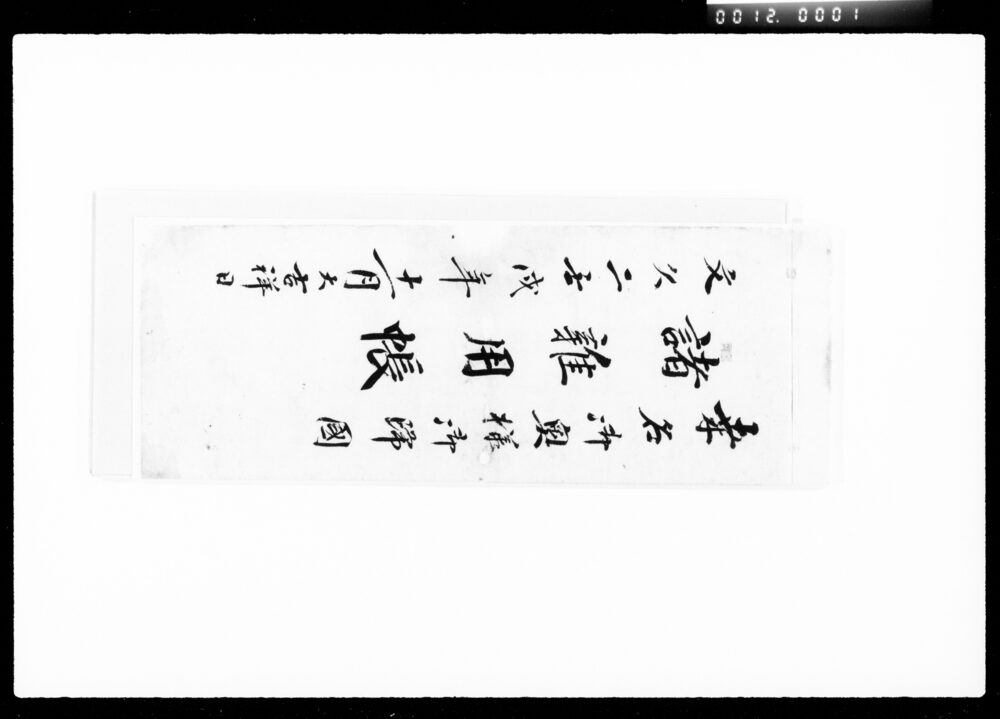 桒名御奥様御歸國
諸雜用帳
文久二壬戌年十一月大吉祥日
0012. 0001